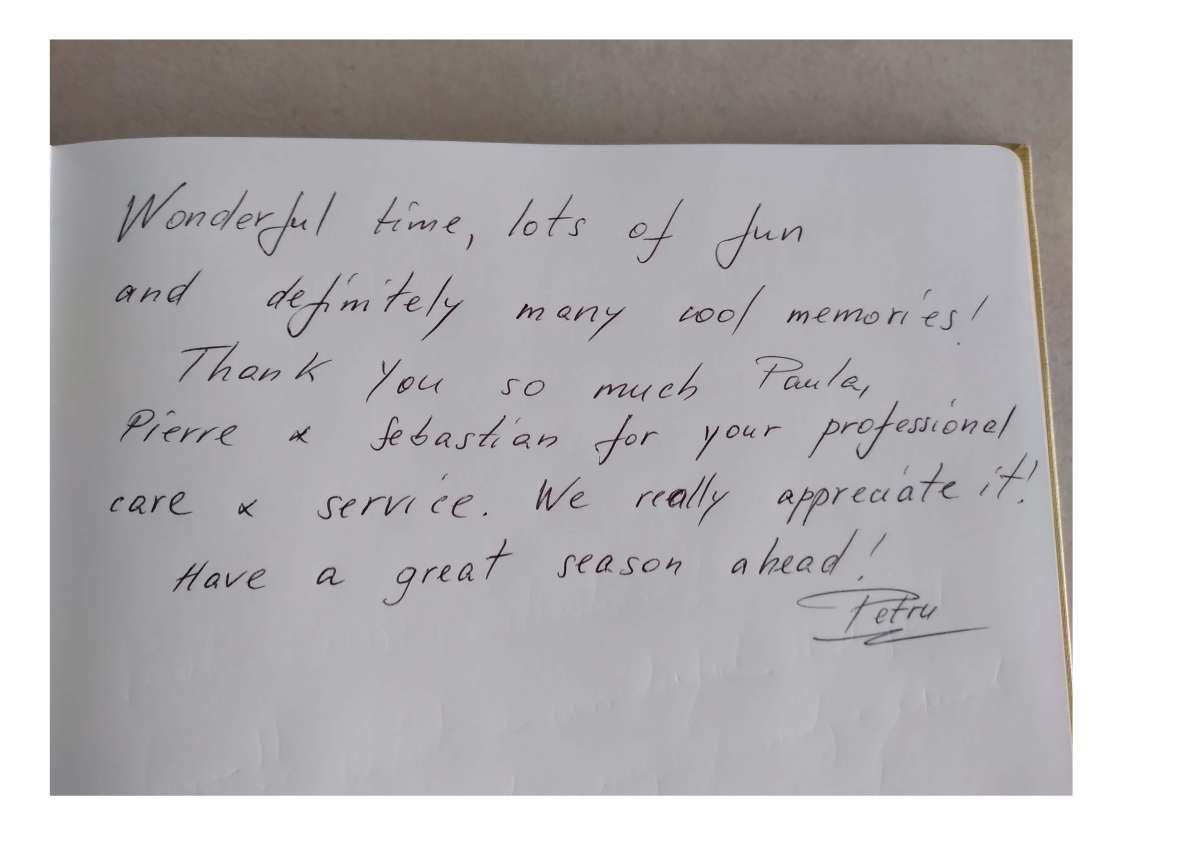 Wonderful time, lots of fun
and definitely many cool memories!
Thank You so much Paula,
Pierre & Sebastian for your professional
care & service. We really appreciate it!
Have a great season ahead!
Petru